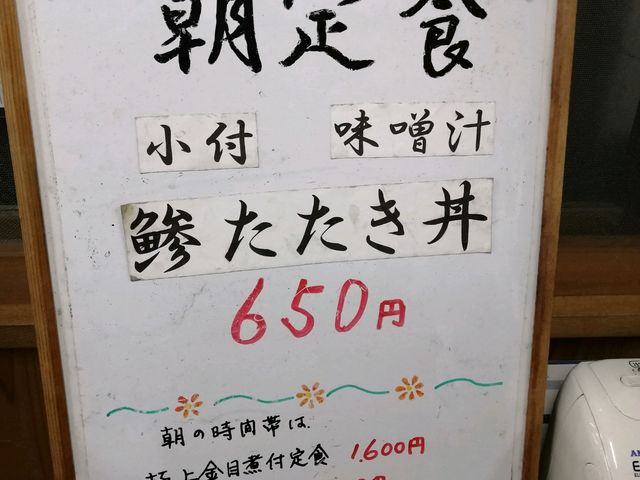 朝定食
小付 味噌汁
鯵たたき丼
650円
朝の時間帯は
極上金目煮付定食 1,600円